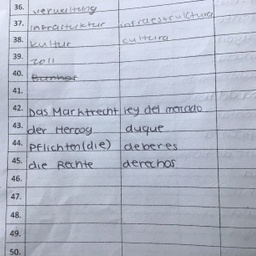 36. verwaltung
37. infrastruktur infraestructura
38. kultur cultura
39. zoll
40.
41.
42. Das Marktrecht ley del mercado
43. der Herzog duque
44. Pflichten (die) deberes
45. die Rechte derechos
46.
47.
48.
49.
50.